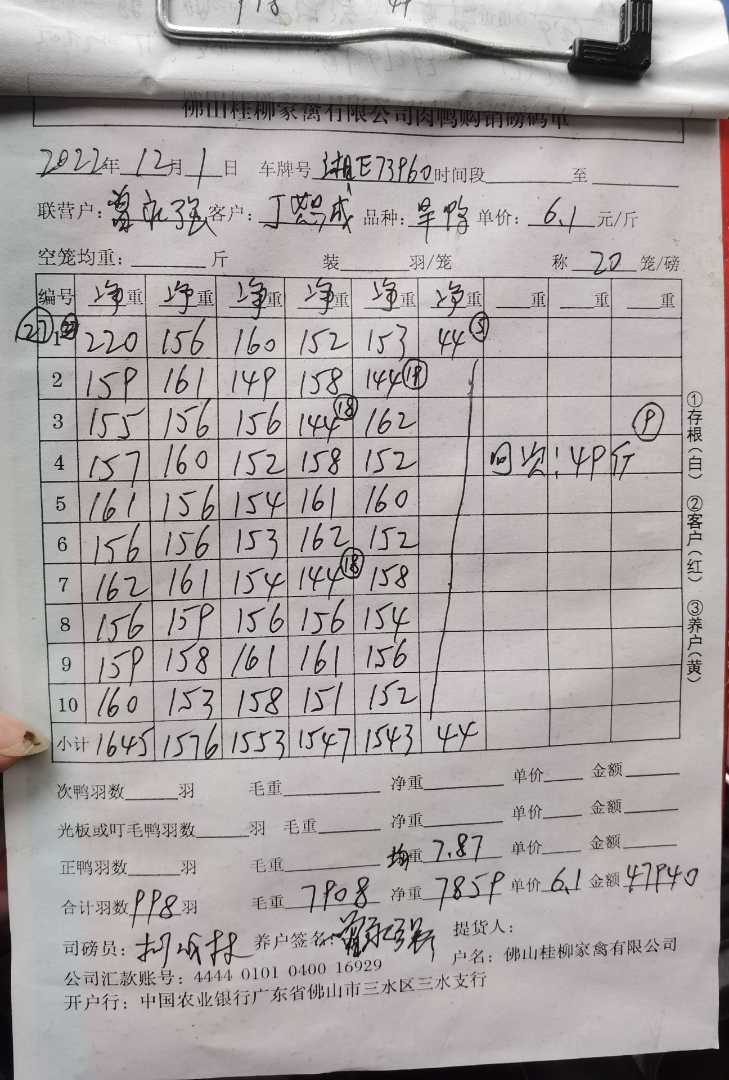 佛山桂柳家禽有限公司肉鸭购销磅码单
2022年 12月 1日 车牌号 湘E73960 时间段 至
联营户: 曾永强 客户: 丁 成 品种: 旱鸭 单价: 6.1 元/斤
空笼均重: 斤 装 羽/笼 称 20 笼/磅
编号 净重 净重 净重 净重 净重 净重 重 重 重
㉗ 1 220 156 160 152 153 44 ⑤
2 159 161 149 158 144 ⑲
3 155 156 156 144 ⑱ 162 ⑨
4 157 160 152 158 152 回次:49斤
5 161 156 154 161 160
6 156 156 153 162 152
7 162 161 154 144 ⑱ 158
8 156 159 156 156 154
9 159 158 161 161 156
10 160 153 158 151 152
小计 1645 1576 1553 1547 1543 44
①存根(白) ②客户(红) ③养户(黄)
次鸭羽数 羽 毛重 净重 单价 金额
光板或叮毛鸭羽数 羽 毛重 净重 单价 金额
正鸭羽数 羽 毛重 均重 7.87 单价 金额
合计羽数 998 羽 毛重 7908 净重 7859 单价 6.1 金额 47940
司磅员: 养户签名: 曾永强 提货人:
公司汇款账号: 4444 0101 0400 16929 户名: 佛山桂柳家禽有限公司
开户行: 中国农业银行广东省佛山市三水区三水支行